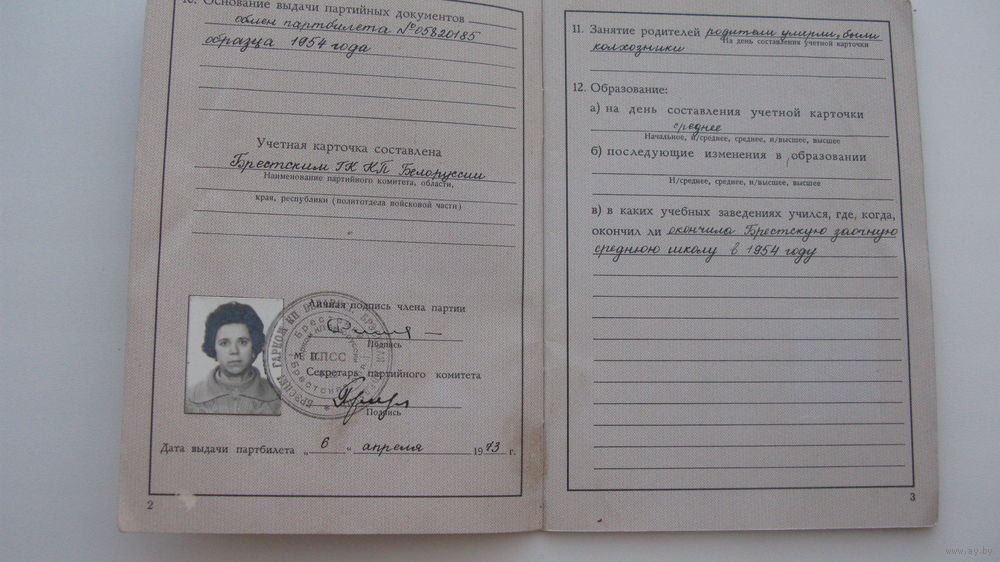 10. Основание выдачи партийных документов
обмен партбилета № 05820185
образца 1954 года
Учетная карточка составлена
Брестским ГК КП Белоруссии
Наименование партийного комитета, области,
края, республики (политотдела войсковой части)
Личная подпись члена партии
Подпись
М. П.
КПСС
Секретарь партийного комитета
Подпись
Дата выдачи партбилета „ 6 " апреля 1973 г.
2
11. Занятие родителей родители умерли, были
На день составления учетной карточки
колхозники
12. Образование:
а) на день составления учетной карточки
среднее
Начальное, н/среднее, среднее, н/высшее, высшее
б) последующие изменения в образовании
Н/среднее, среднее, н/высшее, высшее
в) в каких учебных заведениях учился, где, когда,
окончил ли окончила Брестскую заочную
среднюю школу в 1954 году
3
www.ay.by